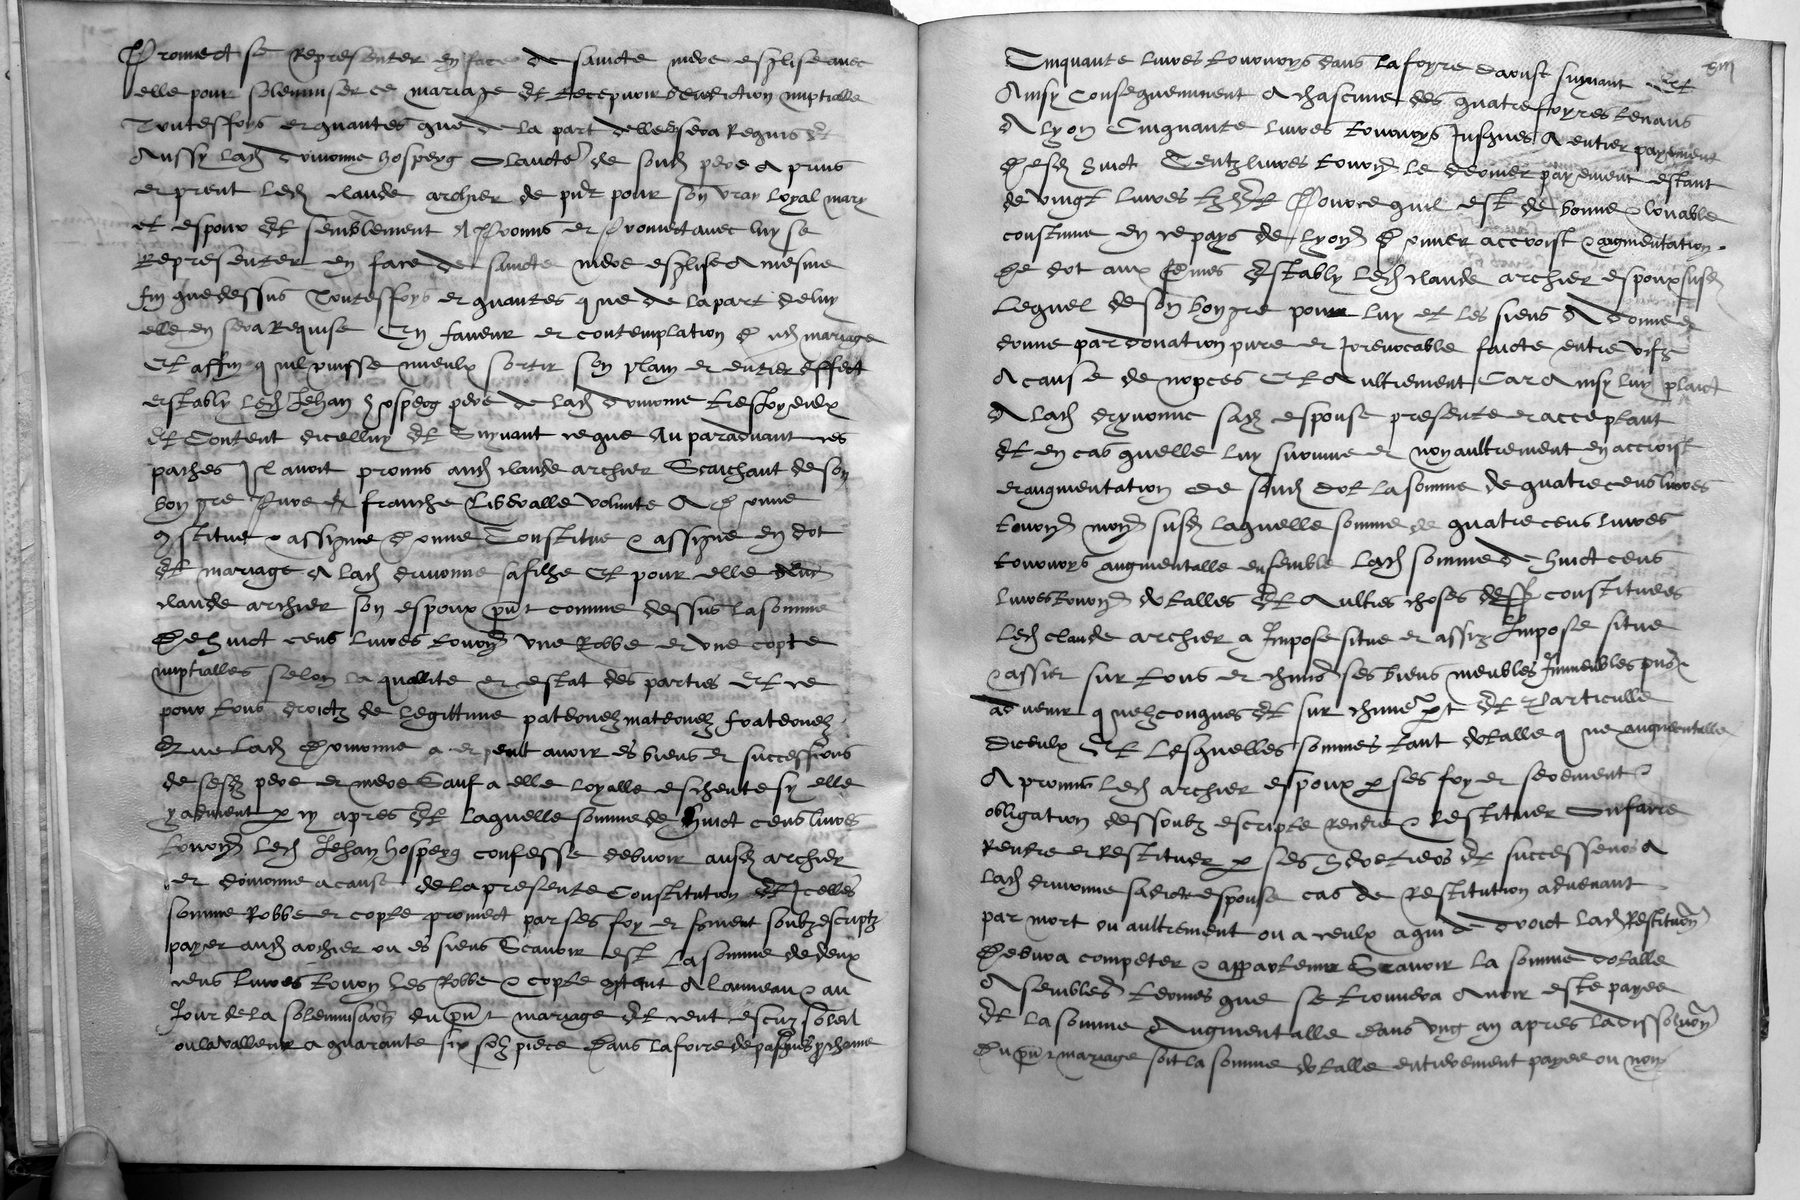 Promect se representer en face de saincte mere esglise avec
elle pour solempniser ce mariage et recepvoir benediction nuptialle
Toutesfoys et quantes que de la part delle en sera Requis Et
Aussy lad Ivonne hospery Dauctē de sond pere A prins
et prent led claude archier de pnt pour son vray loyal mary
et espoux Et semblement A Promis et Promect avec luy se
Representer en face de saincte mere esglise A mesme
fin que dessus Toutesfoys et quantes que de la part de luy
elle en sera Requise En faveur et contemplation dud mariage
Et affin quil puisse mieulx sortir son plain et entier effect
estably led Jehan hospery pere de lad Ivonne tresjoyeulx
Et Content dicelluy Et Suyvant ce que Au paradvant ces
paches Il avoit promis aud claude archier Scaichant de son
bon gre Pure et franche Liberalle volunte A donne
constitue & assigne Donne Constitue & assigne en dot
Et mariage A lad Ivonne sa filhe Et pour elle
claude archier son espoux pnt comme dessus la somme
De huict cens livres tourn Une Robbe et une copte
nuptialles selon la quallite et estat des parties Et ce
pour tous droictz de legittime paternelz maternelz fraternelz
Que lad Ivonne a et peult avoir es biens et successions
de sesd pere et mere Sauf a elle loyalle escheute sy elle
y advient par cy apres Et laquelle somme de huict cens livres
tourn led Jehan hospery confesse debvoir ausd archier
et Ivonne a cause de la presente Constitution Et Icelles
somme Robbe et copte promect par ses foy et serment soubz escriptz
payer aud archier ou es siens Scavoir est La somme de deux
cens livres tourn les Robbe & copte Alanneau & au
Jour de la solempnisaon du pnt mariage Et cent escuz soleil
ou la valleur a quarante six solz piece Dans la foire de pasques prochaine
Cinquante livres tournoys dans la foyre daoust suyvant Et
Ainsy Consequemment A chascune des quatre foyres tenans
A lyon Cinquante livres tournoys Jusques A entier payement
Desd huict Centz livres tourn le dernier payement estant
de vingt livres Et Pource quil est de bonne & louable
coustume en ce pays de lyonn Donner accroist & augmentation
De dot aux femes Estably led claude archier espoux susd
Lequel de son bon gre pour luy et les siens A donne et
donne par donation pure et Irrevocable faicte entre vifz
A cause de nopces Et Aultrement Car Ainsy luy plaict
A lad Ivonne sad espouse presente et acceptant
Et en cas quelle luy survive et non aultrement en accroist
et augmentation de sond dot la somme de quatre cens livres
tourn monn susd laquelle somme de quatre cens livres
tournoys augmentalle ensemble lad somme de huict cens
livres tourn dotalles Et Aultres choses dess constituees
Led claude archier a Impose situe et assiz Impose situe
& assiet sur tous et chmns ses biens meubles Immeubles pns &
advenir quelzconques Et sur chme part Et Particulle
diceulx Et lesquelles sommes tant dotalle que augmentalle
A promis led archier espoux par ses foy et serement &
obligation dessoubz escripte rendre & Restituer ou faire
Rendre et Restituer par ses heretiers Et successeurs A
lad Ivonne sadicte espouse cas de Restitution advenant
par mort ou aultrement ou a ceulx a qui de droict lad Restituon
Debvra competer & appartenir Scavoir la somme dotalle
A semblables termes que se trouvera Avoir este payee
Et la somme Augmentalle dans ung an apres la dissoluon
Du pnt mariage soit la somme dotalle entierement payee ou non